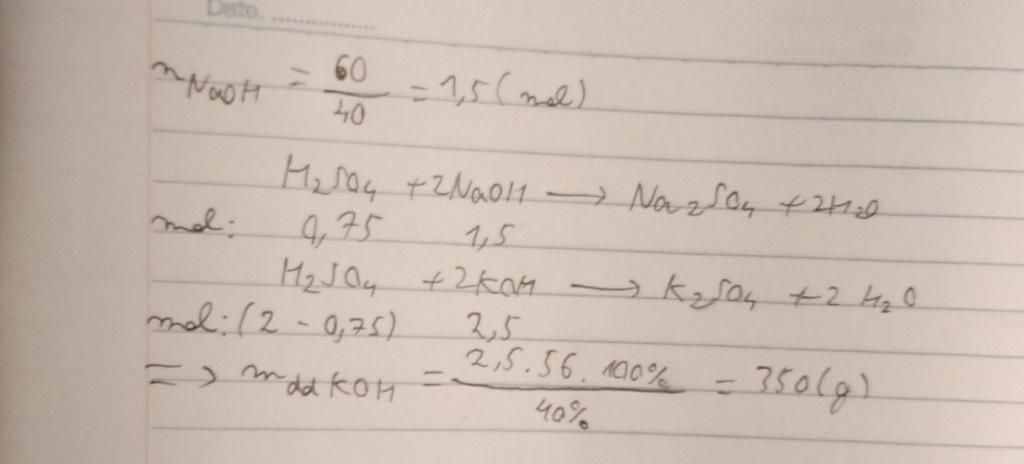 Date. ..................
n NaOH = 60/40 = 1,5 (mol)
H₂SO₄ + 2NaOH ⟶ Na₂SO₄ + 2H₂O
mol: 0,75 1,5
H₂SO₄ + 2KOH ⟶ K₂SO₄ + 2 H₂O
mol: (2 - 0,75) 2,5
=> m dd KOH = 2,5 . 56 . 100% / 40% = 350 (g)